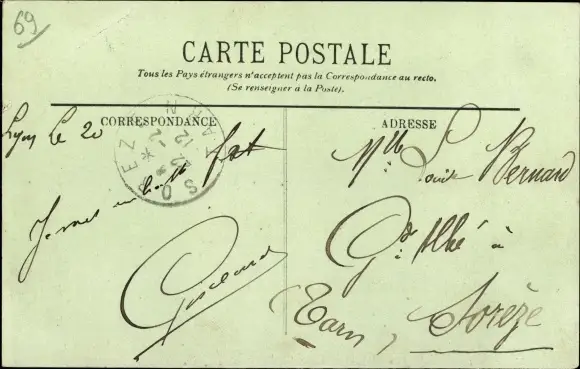 69
CARTE POSTALE
Tous les Pays étrangers n'acceptent pas la Correspondance au recto.
(Se renseigner à la Poste).
CORRESPONDANCE
ADRESSE
Lyon le 20
SOREZE
TARN
Mlle Louise Bernard
à
Tarn, Sorèze